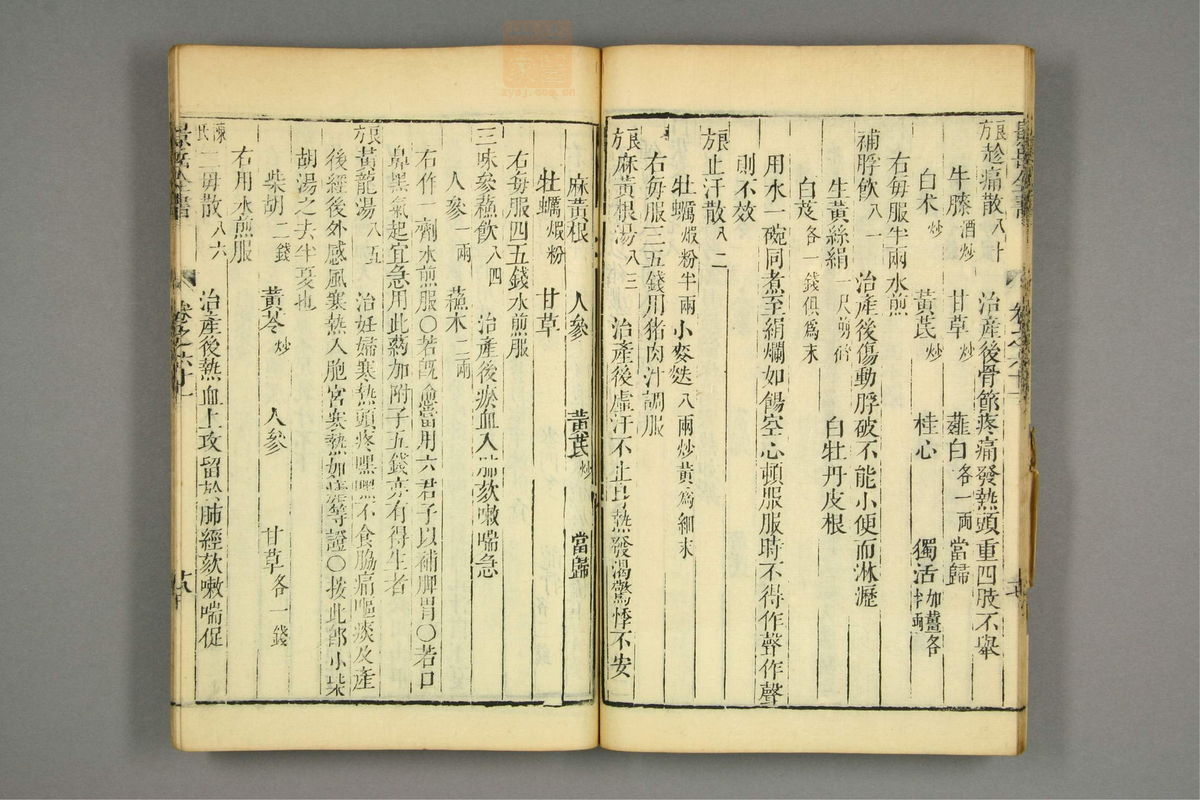 景岳全書 卷之六十一
良方趁痛散八十 治產後骨節疼痛發熱頭重四肢不舉
牛膝酒炒 甘草炒 薤白各一兩 當歸
白术炒 黃芪炒 桂心 獨活 加薑各半兩
右每服半兩水煎
補脬飲八一 治產後傷動脬破不能小便而淋瀝
生黃絲絹一尺剪碎 白牡丹皮根
白芨各一錢俱為末
用水一碗同煮至絹爛如餳空心頓服服時不得作聲作聲
則不效
良方止汗散八二
牡蠣煆粉半兩 小麥麩八兩炒黃為細末
右每服三五錢用猪肉汁調服
良方麻黃根湯八三 治產後虛汗不止身熱發渴驚悸不安
麻黃根 人參 黃芪炒 當歸
牡蠣煆粉 甘草
右每服四五錢水煎服
三味參蘇飲八四 治產後瘀血入肺欬嗽喘急
人參一兩 蘇木二兩
右作一劑水煎服〇若旣愈當用六君子以補脾胃〇若口
鼻黑氣起宜急用此藥加附子五錢亦有得生者
良方黃龍湯八五 治妊婦寒熱頭疼嘿嘿不食脇痛嘔痰及產
後經後外感風寒熱入胞宮寒熱如瘧等證〇按此卽小柴
胡湯之去半夏也
柴胡二錢 黃芩炒 人參 甘草各一錢
右用水煎服
陳氏二母散八六 治產後熱血上攻留於肺經欬嗽喘促
景岳全書 卷之六十一